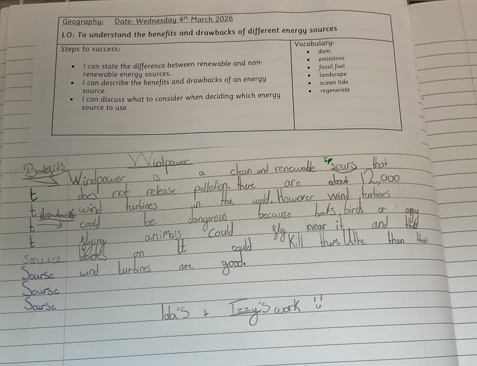 Geography: Date: Wednesday 4th March 2026
LO: To understand the benefits and drawbacks of different energy sources
Steps to success:
I can state the difference between renewable and non-
renewable energy sources.
I can describe the benefits and drawbacks of an energy
source.
I can discuss what to consider when deciding which energy
source to use
Vocabulary:
dam
emissions
fossil fuel
landscape
ocean tide
regenerate
Windpower
Benefits
Windpower is a clean and renewable sours that
sp
t does not release pollution. there are about 12,000
t drawbacks wind turbines in the world. However wind turbines
t could be dangerous because bats, birds or any
t flying animals could fly near it and the
Source blades on it could kill them. than that
Sourse wind turbines are good.
Sourse
Sourse
Ida's + Izzy's work !!